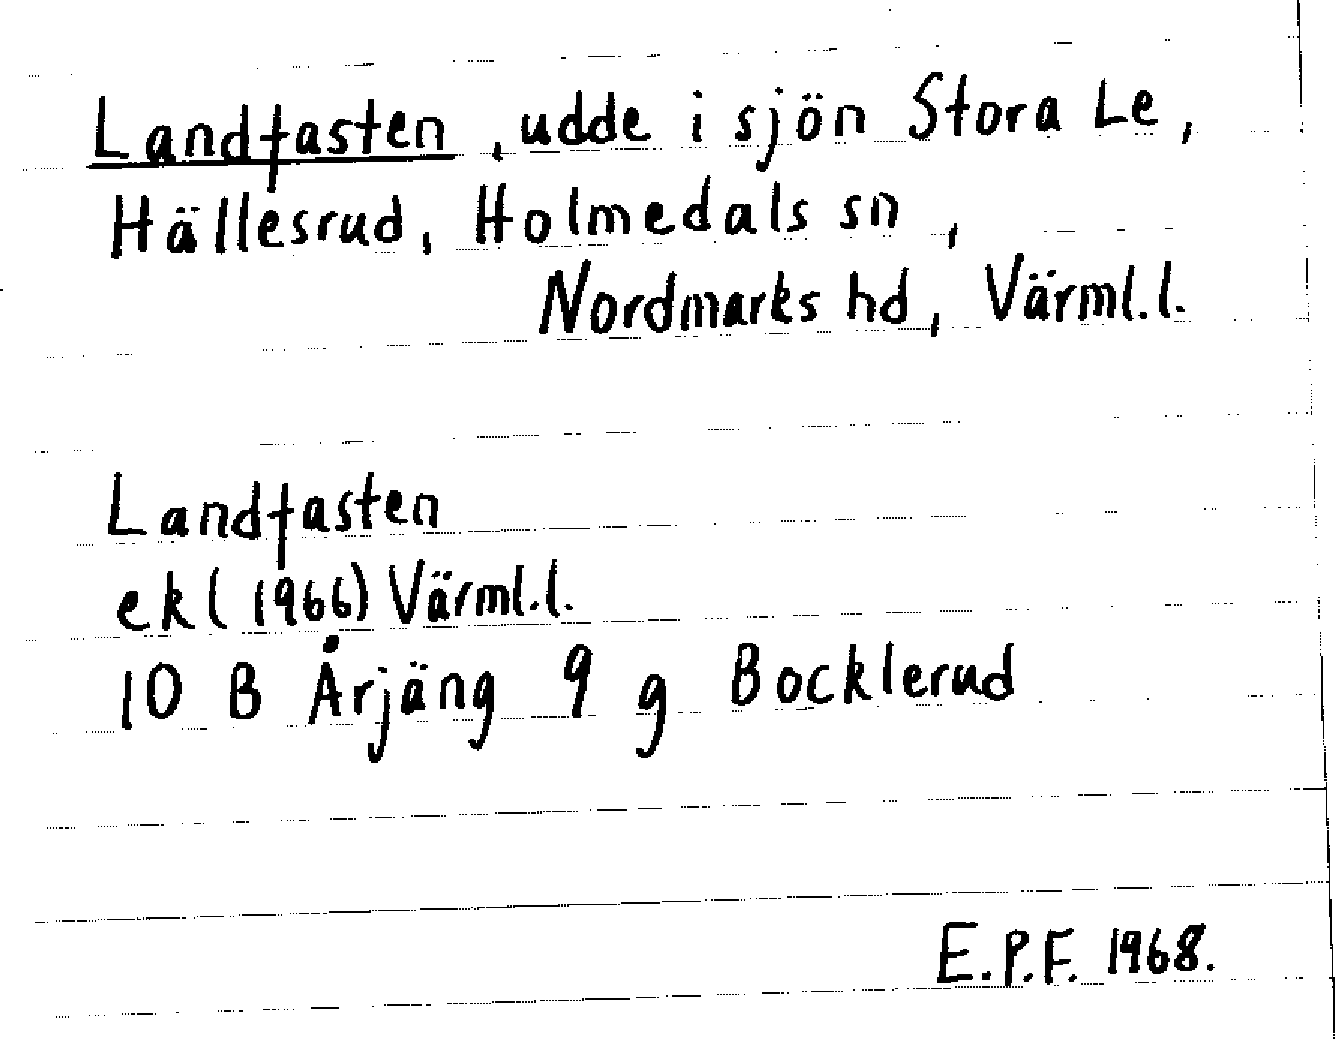 Landfasten, udde i sjön Stora Le,
Hällesrud, Holmedals sn,
Nordmarks hd, Värml.l.
Landfasten
ekl (1966) Värml.l.
10 B Årjäng 9 g Bocklerud
E.P.F. 1968.